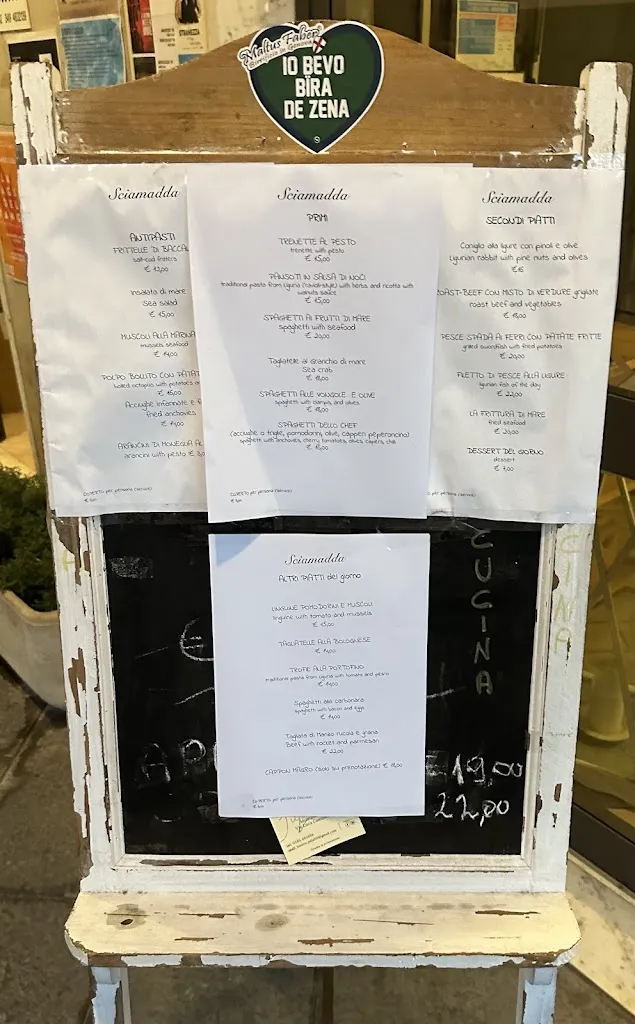 Maltus Faber
Birrificio in Genova
IO BEVO
BÏRA
DE ZENA
Sciamadda
ANTIPASTI
FRITTELLE DI BACCAL
salt-cod fritters
€ 12,00
Insalata di mare
Sea salad
€ 15,00
MUSCOLI ALLA MARINA
mussels seafood
€ 14,00
POLPO BOLLITO CON PATAT
boiled octopus with potatoes
€ 16,00
Acciughe infarinate e f
fried anchovies
€ 14,00
ARANCINI DI MONEGLIA AL
arancini with pesto
COPERTO per persona (service)
Sciamadda
PRIMI
TRENETTE AL PESTO
trenette with pesto
€ 15,00
PANSOTI IN SALSA DI NOCI
traditional pasta from Liguria (ravioli-style) with herbs and ricotta with
walnuts sauce
€ 15,00
SPAGHETTI AI FRUTTI DI MARE
spaghetti with seafood
€ 20,00
Tagliatelle al Granchio di mare
Sea crab
€ 18,00
SPAGHETTI ALLE VONGOLE E OLIVE
spaghetti with clamps, and olives
€ 18,00
SPAGHETTI DELLO CHEF
(acciughe o triglie, pomodorini, olive, capperi peperoncino)
spaghetti with anchovies, cherry tomatoes, olives, capers, chili
COPERTO per persona (service)
Sciamadda
SECONDI PIATTI
Coniglio alla ligure con pinoli e olive
Ligurian rabbit with pine nuts and olives
€16
ROAST-BEEF CON MISTO DI VERDURE grigliate
roast beef and vegetables
€ 18,00
PESCE SPADA AI FERRI CON PATATE FRITTE
grilled swordfish with fried potatoes
€ 20,00
FILETTO DI PESCE ALLA LIGURE
ligurian fish of the day
€ 22,00
LA FRITTURA DI MARE
fried seafood
€ 20,00
DESSERT DEL GIORNO
dessert
€ 7,00
COPERTO per persona (service)
Sciamadda
ALTRI PIATTI del giorno
LINGUINE POMODORINI E MUSCOLI
linguine with tomato and mussels
€ 15,00
TAGLIATELLE ALLA BOLOGNESE
€ 14,00
TROFIE ALLA PORTOFINO
traditional pasta from Liguria with tomato and pesto
€ 14,00
Spaghetti alla carbonara
spaghetti with bacon and eggs
€ 14,00
Tagliata di Manzo rucola e grana
Beef with rocket and parmesan
€ 22,00
CAPPON MAGRO (solo su prenotazione) € 18,00
COPERTO per persona (service)
CUCINA
€
€19,00
22,00